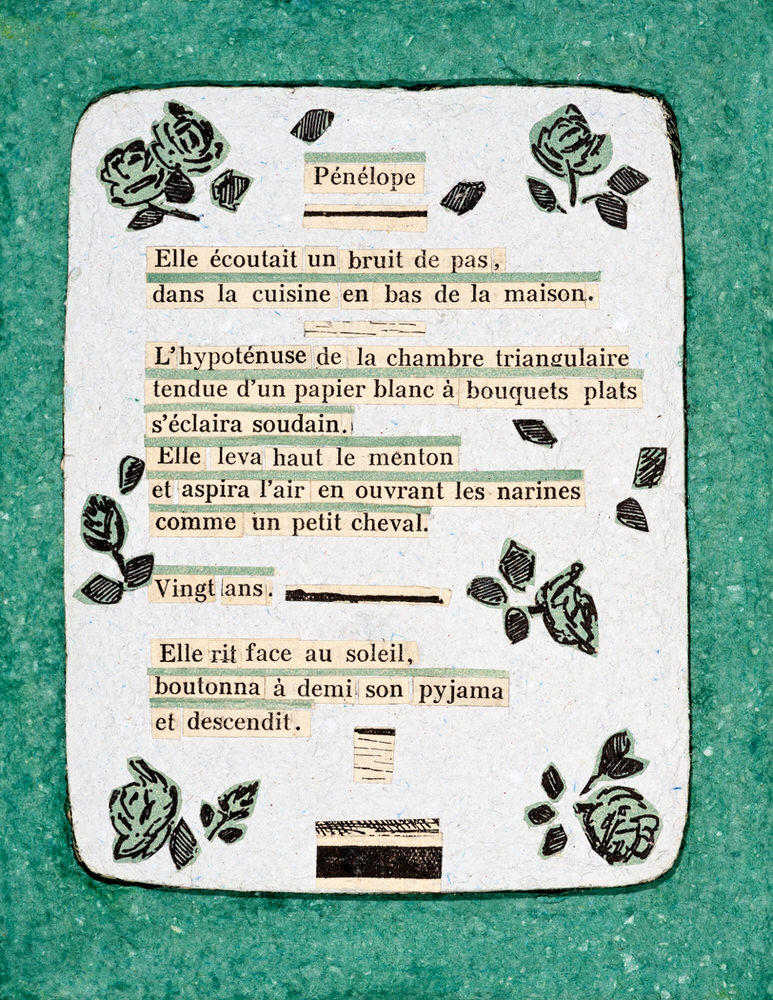 Pénélope
Elle écoutait un bruit de pas,
dans la cuisine en bas de la maison.
L'hypoténuse de la chambre triangulaire
tendue d'un papier blanc à bouquets plats
s'éclaira soudain.
Elle leva haut le menton
et aspira l'air en ouvrant les narines
comme un petit cheval.
Vingt ans.
Elle rit face au soleil,
boutonna à demi son pyjama
et descendit.